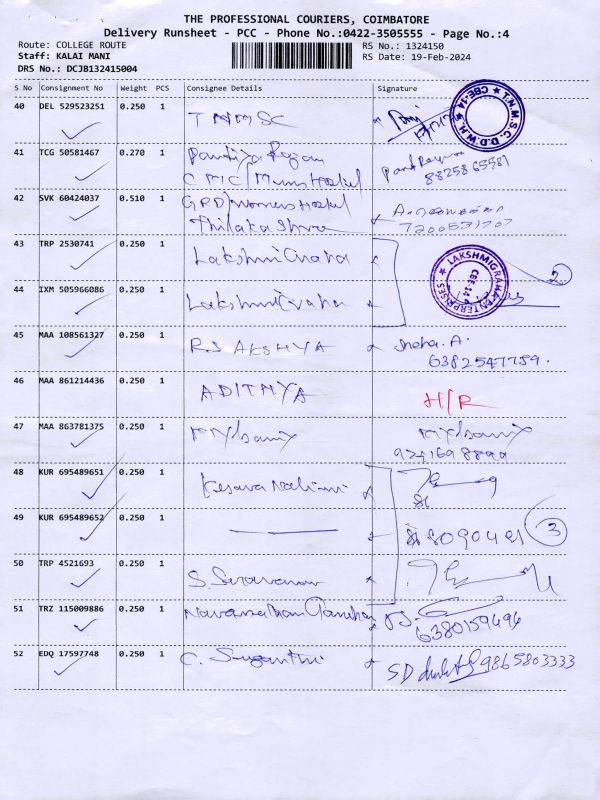 THE PROFESSIONAL COURIERS, COIMBATORE
Delivery Runsheet - PCC - Phone No.:0422-3505555 - Page No.:4
Route: COLLEGE ROUTE
RS No.: 1324150
Staff: KALAI MANI
RS Date: 19-Feb-2024
DRS No.: DCJB132415004
S No Consignment No Weight PCS Consignee Details Signature
40 DEL 529523251 0.250 1 TNMSC
T.N.M.S.C.D.W.H. CBE-14
41 TCG 50581467 0.270 1 Pandiya Rajan
CMC/Mens Hostel 88258 65581
42 SVK 60424037 0.510 1 GPD/Womens Hostel
Thilaka 7200531707
43 TRP 2530741 0.250 1 Lakshmi Graha
LAKSHMIGRAHA ENTERPRISES CBE-14
2
44 IXM 505966086 0.250 1 Lakshmi Graha
45 MAA 108561327 0.250 1 R.S AKSHYA Sneha. A.
6382547789.
46 MAA 861214436 0.250 1 ADITHYA H/R
47 MAA 863781375 0.250 1
48 KUR 695489651 0.250 1 Kesava
49 KUR 695489652 0.250 1 3
50 TRP 4521693 0.250 1 S. Saravanan
51 TRZ 115009886 0.250 1
6380159496
52 EDQ 17597748 0.250 1 C. Suganthi 9865803333